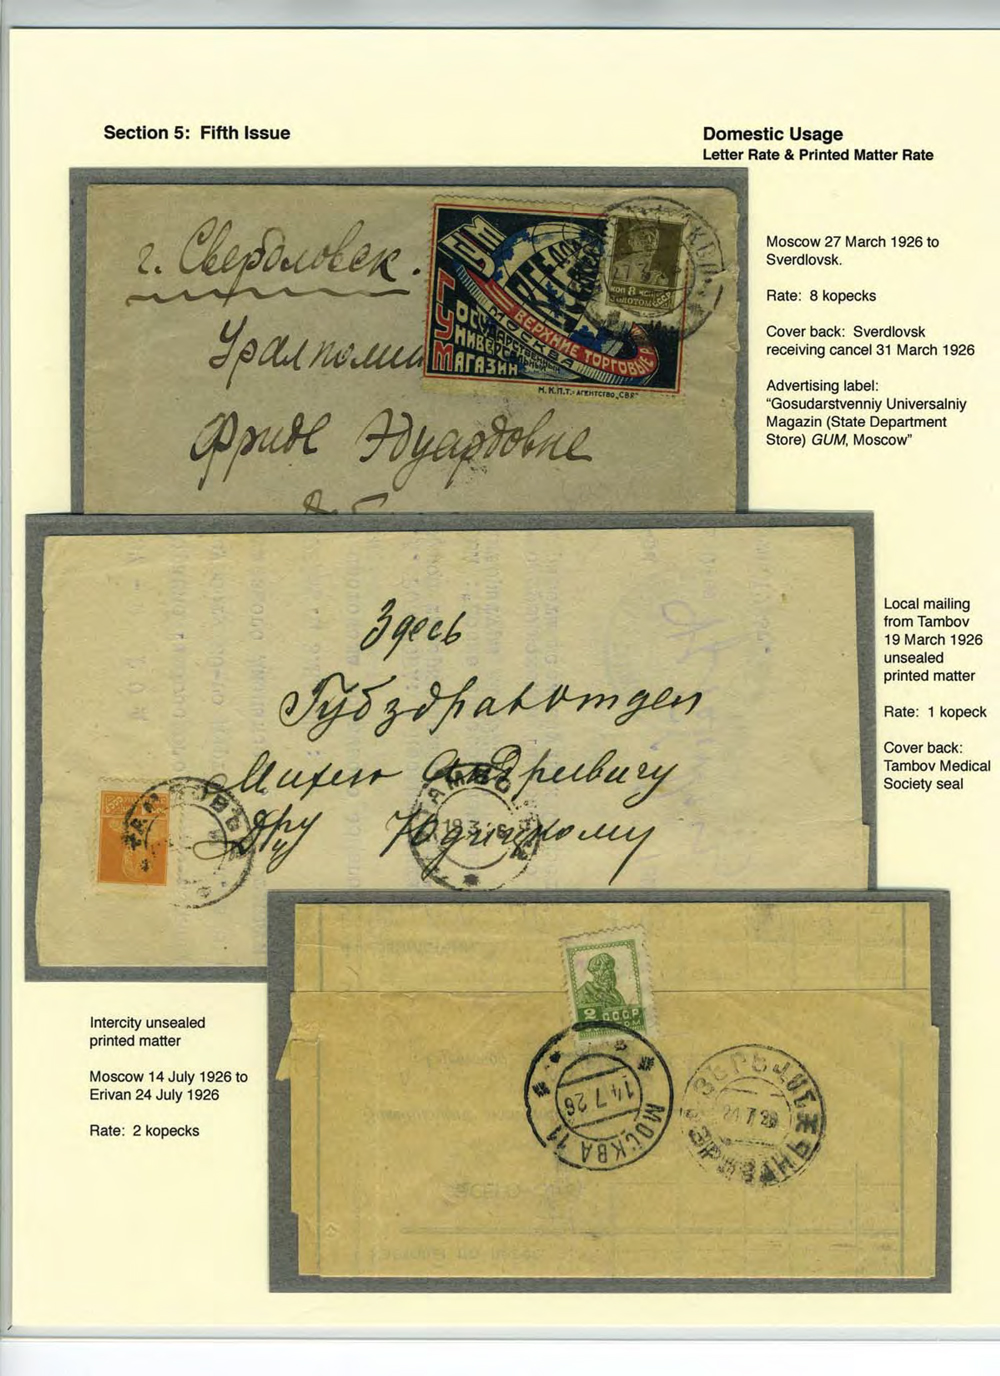 Section 5: Fifth Issue
Domestic Usage
Letter Rate & Printed Matter Rate
г. Свердловск.
Фриде Эдуардовне
ГУМ
МОСКВА
ВЕРХНИЕ ТОРГОВЫЕ Р
ГОСУДАРСТВЕННЫЙ
УНИВЕРСАЛЬНЫЙ
МАГАЗИН
М.К.П.Т.-АГЕНТСТВО „СВЯ"
Moscow 27 March 1926 to
Sverdlovsk.
Rate: 8 kopecks
Cover back: Sverdlovsk
receiving cancel 31 March 1926
Advertising label:
"Gosudarstvenniy Universalniy
Magazin (State Department
Store) GUM, Moscow"
Здесь
Губздравотдел
Михею Андреевичу
Д-ру Юдицкому
ТАМБО
19 3
Local mailing
from Tambov
19 March 1926
unsealed
printed matter
Rate: 1 kopeck
Cover back:
Tambov Medical
Society seal
2 СССР
МОСКВА 11
14 7 26
Intercity unsealed
printed matter
Moscow 14 July 1926 to
Erivan 24 July 1926
Rate: 2 kopecks